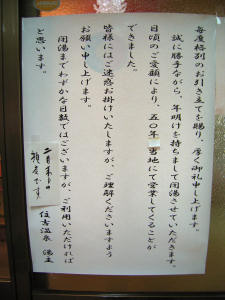 毎度格別のお引き立てを賜り、厚く御礼申し上げます。
誠に勝手ながら、年明けを持ちまして閉湯させていただきます。
日頃のご愛顧により、五〇年当地にて営業してくることが
できました。
皆様にはご迷惑お掛けいたしますが、ご理解くださいますよう
お願い申し上げます。
閉湯までわずかな日数ではございますが、ご利用いただければ
と思います。
二月末日の
予定です
住吉温泉 湯主